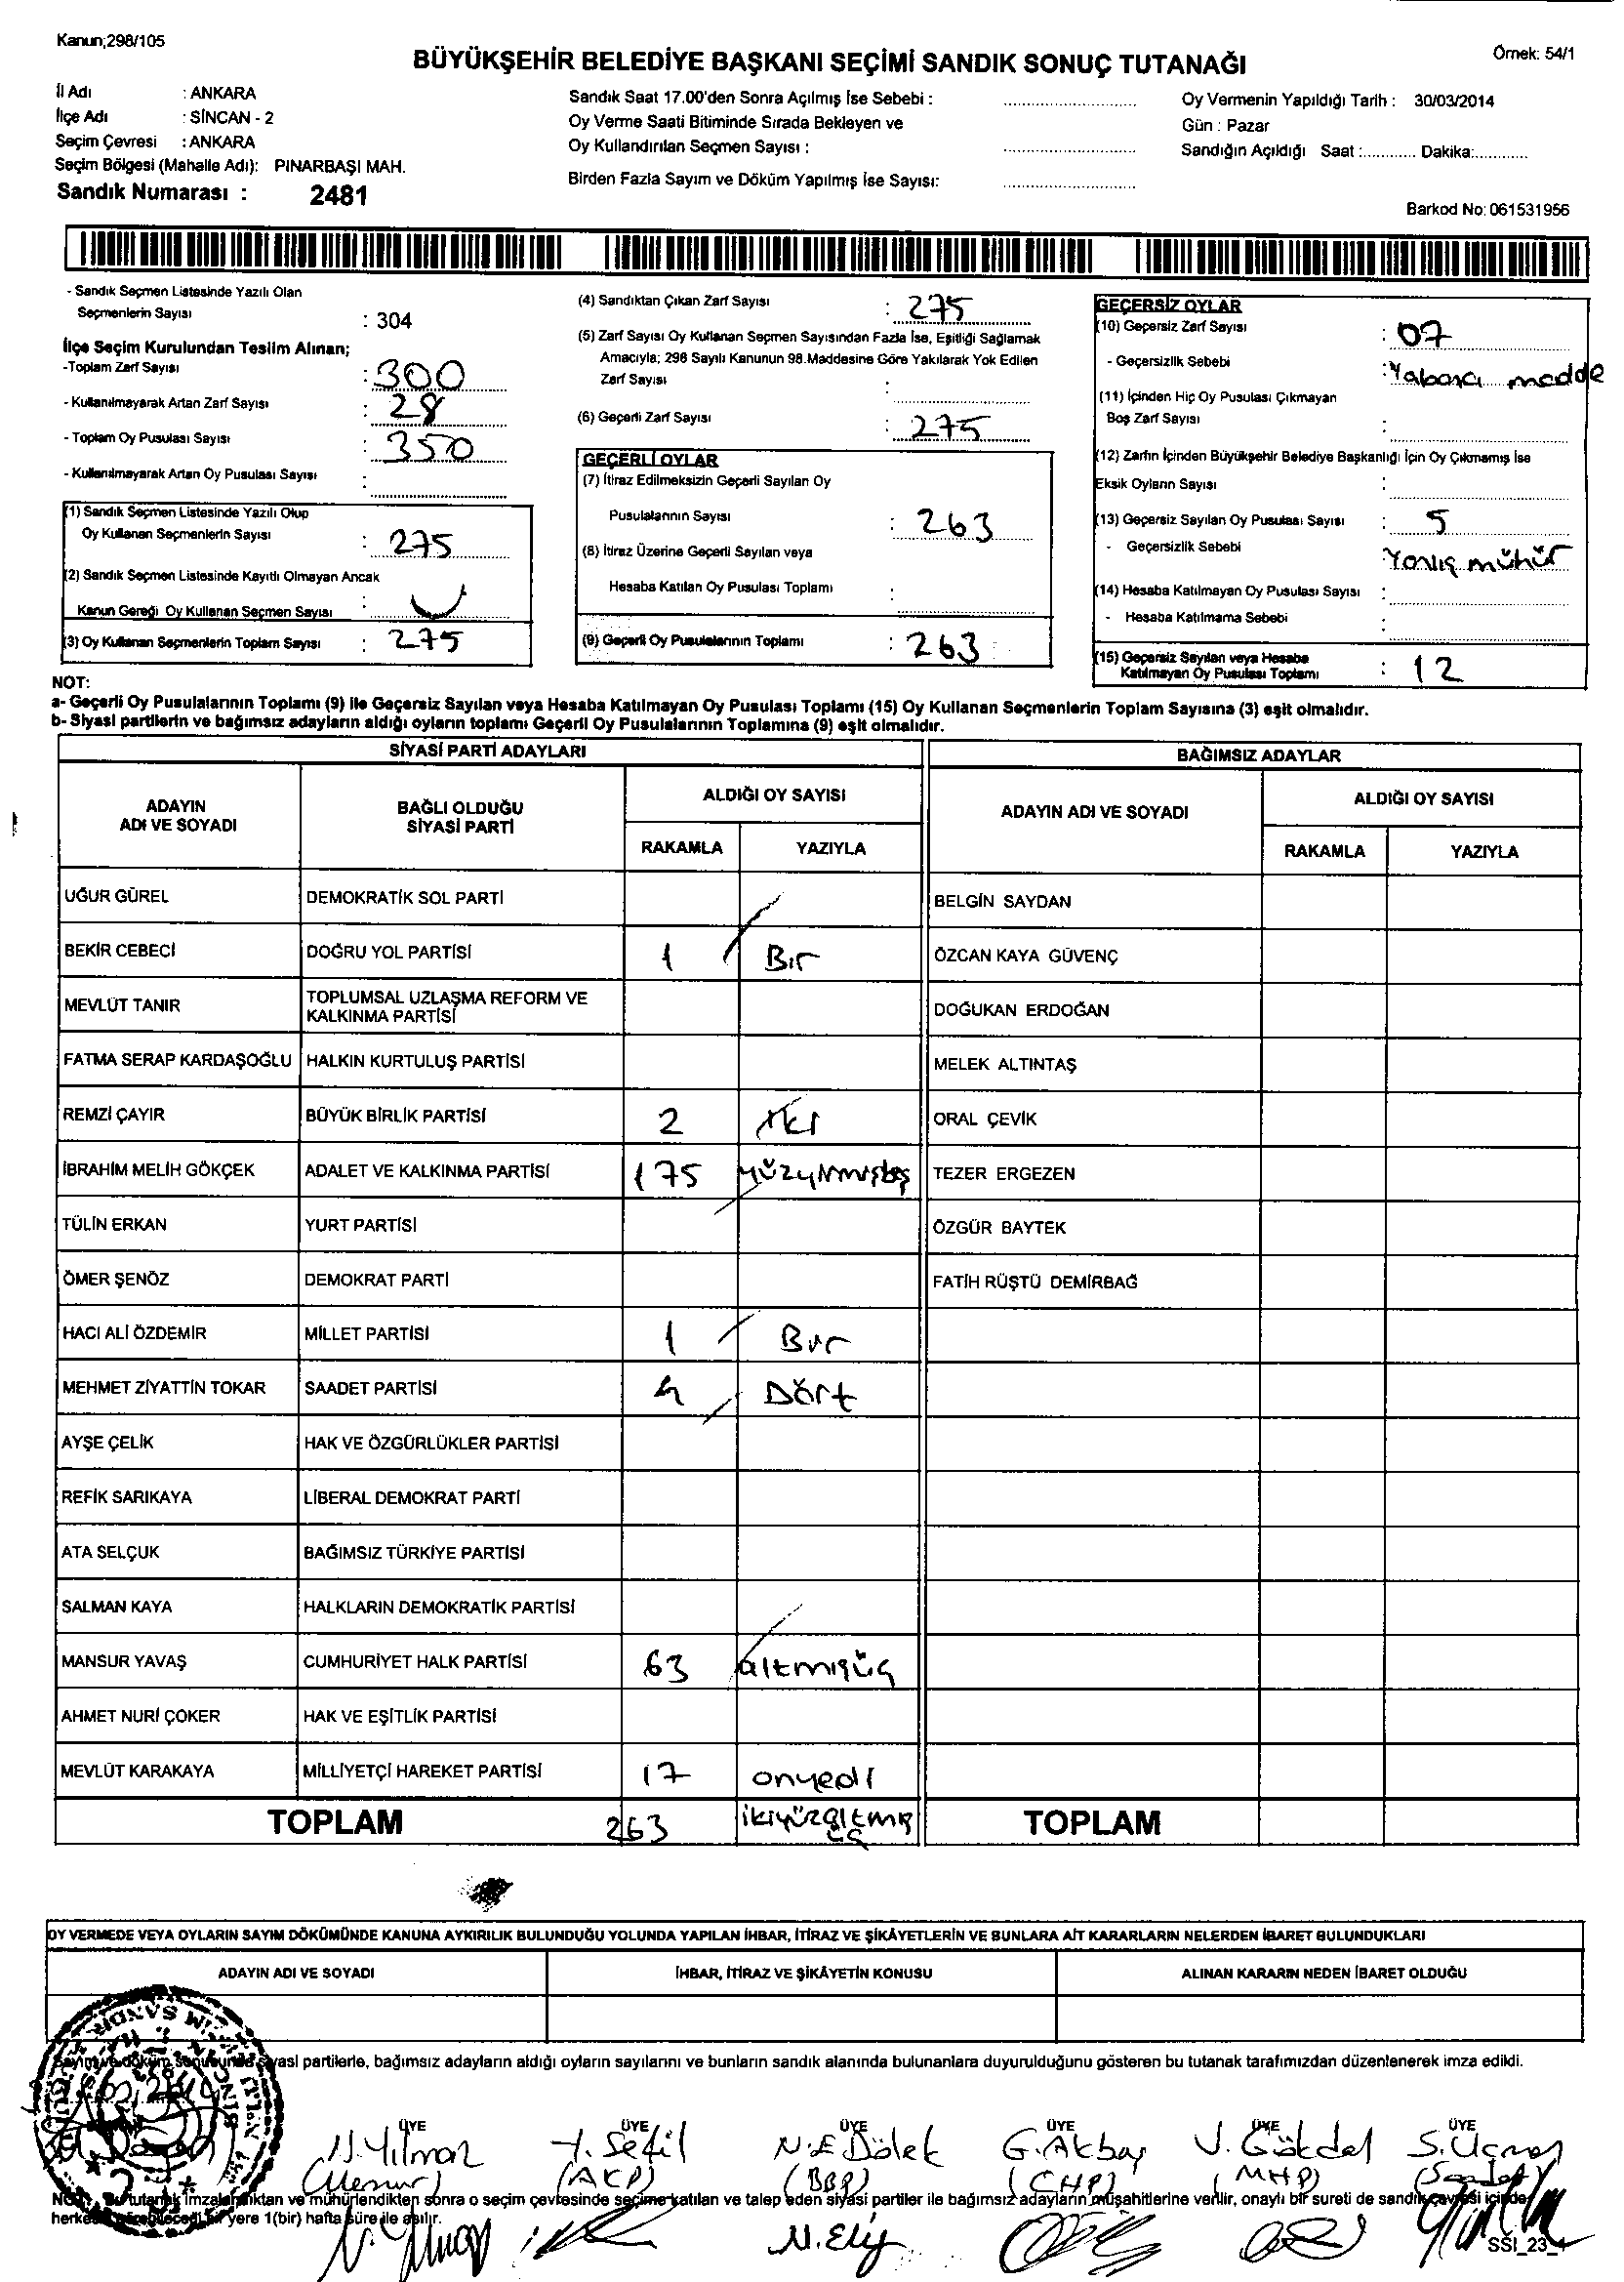 Kanun;298/105
Örnek: 54/1
BÜYÜKŞEHİR BELEDİYE BAŞKANI SEÇİMİ SANDIK SONUÇ TUTANAĞI
İl Adı : ANKARA
İlçe Adı : SİNCAN - 2
Seçim Çevresi : ANKARA
Seçim Bölgesi (Mahalle Adı): PINARBAŞI MAH.
Sandık Numarası : 2481
Sandık Saat 17.00'den Sonra Açılmış İse Sebebi :
Oy Verme Saati Bitiminde Sırada Bekleyen ve
Oy Kullandırılan Seçmen Sayısı :
Birden Fazla Sayım ve Döküm Yapılmış İse Sayısı:
Oy Vermenin Yapıldığı Tarih : 30/03/2014
Gün : Pazar
Sandığın Açıldığı Saat :............ Dakika:............
Barkod No: 061531956
- Sandık Seçmen Listesinde Yazılı Olan
Seçmenlerin Sayısı : 304
İlçe Seçim Kurulundan Teslim Alınan;
-Toplam Zarf Sayısı : 300
- Kullanılmayarak Artan Zarf Sayısı : 28
- Toplam Oy Pusulası Sayısı : 350
- Kullanılmayarak Artan Oy Pusulası Sayısı :
(1) Sandık Seçmen Listesinde Yazılı Olup
Oy Kullanan Seçmenlerin Sayısı : 275
(2) Sandık Seçmen Listesinde Kayıtlı Olmayan Ancak
Kanun Gereği Oy Kullanan Seçmen Sayısı :
(3) Oy Kullanan Seçmenlerin Toplam Sayısı : 275
(4) Sandıktan Çıkan Zarf Sayısı : 275
(5) Zarf Sayısı Oy Kullanan Seçmen Sayısından Fazla İse, Eşitliği Sağlamak
Amacıyla; 298 Sayılı Kanunun 98.Maddesine Göre Yakılarak Yok Edilen
Zarf Sayısı :
(6) Geçerli Zarf Sayısı : 275
GEÇERLİ OYLAR
(7) İtiraz Edilmeksizin Geçerli Sayılan Oy
Pusulalarının Sayısı : 263
(8) İtiraz Üzerine Geçerli Sayılan veya
Hesaba Katılan Oy Pusulası Toplamı :
(9) Geçerli Oy Pusulalarının Toplamı : 263
GEÇERSİZ OYLAR
(10) Geçersiz Zarf Sayısı : 07
- Geçersizlik Sebebi : Yabancı madde
(11) İçinden Hiç Oy Pusulası Çıkmayan
Boş Zarf Sayısı :
(12) Zarfın İçinden Büyükşehir Belediye Başkanlığı İçin Oy Çıkmamış İse
Eksik Oyların Sayısı :
(13) Geçersiz Sayılan Oy Pusulası Sayısı : 5
- Geçersizlik Sebebi Yanlış mühür
(14) Hesaba Katılmayan Oy Pusulası Sayısı :
- Hesaba Katılmama Sebebi :
(15) Geçersiz Sayılan veya Hesaba
Katılmayan Oy Pusulası Toplamı : 12
NOT:
a- Geçerli Oy Pusulalarının Toplamı (9) ile Geçersiz Sayılan veya Hesaba Katılmayan Oy Pusulası Toplamı (15) Oy Kullanan Seçmenlerin Toplam Sayısına (3) eşit olmalıdır.
b- Siyasi partilerin ve bağımsız adayların aldığı oyların toplamı Geçerli Oy Pusulalarının Toplamına (9) eşit olmalıdır.
SİYASİ PARTİ ADAYLARI
ADAYIN ADI VE SOYADI
BAĞLI OLDUĞU SİYASİ PARTİ
ALDIĞI OY SAYISI
RAKAMLA YAZIYLA
UĞUR GÜREL DEMOKRATİK SOL PARTİ
BEKİR CEBECİ DOĞRU YOL PARTİSİ 1 Bir
MEVLÜT TANIR TOPLUMSAL UZLAŞMA REFORM VE
KALKINMA PARTİSİ
FATMA SERAP KARDAŞOĞLU HALKIN KURTULUŞ PARTİSİ
REMZİ ÇAYIR BÜYÜK BİRLİK PARTİSİ 2 İki
İBRAHİM MELİH GÖKÇEK ADALET VE KALKINMA PARTİSİ 175 yüzyetmişbeş
TÜLİN ERKAN YURT PARTİSİ
ÖMER ŞENÖZ DEMOKRAT PARTİ
HACI ALİ ÖZDEMİR MİLLET PARTİSİ 1 Bir
MEHMET ZİYATTİN TOKAR SAADET PARTİSİ 4 Dört
AYŞE ÇELİK HAK VE ÖZGÜRLÜKLER PARTİSİ
REFİK SARIKAYA LİBERAL DEMOKRAT PARTİ
ATA SELÇUK BAĞIMSIZ TÜRKİYE PARTİSİ
SALMAN KAYA HALKLARIN DEMOKRATİK PARTİSİ
MANSUR YAVAŞ CUMHURİYET HALK PARTİSİ 63 altmışüç
AHMET NURİ ÇOKER HAK VE EŞİTLİK PARTİSİ
MEVLÜT KARAKAYA MİLLİYETÇİ HAREKET PARTİSİ 17 onyedi
TOPLAM 263 ikiyüzaltmış
üç
BAĞIMSIZ ADAYLAR
ADAYIN ADI VE SOYADI
ALDIĞI OY SAYISI
RAKAMLA YAZIYLA
BELGİN SAYDAN
ÖZCAN KAYA GÜVENÇ
DOĞUKAN ERDOĞAN
MELEK ALTINTAŞ
ORAL ÇEVİK
TEZER ERGEZEN
ÖZGÜR BAYTEK
FATİH RÜŞTÜ DEMİRBAĞ
TOPLAM
OY VERMEDE VEYA OYLARIN SAYIM DÖKÜMÜNDE KANUNA AYKIRILIK BULUNDUĞU YOLUNDA YAPILAN İHBAR, İTİRAZ VE ŞİKÂYETLERİN VE BUNLARA AİT KARARLARIN NELERDEN İBARET BULUNDUKLARI
ADAYIN ADI VE SOYADI İHBAR, İTİRAZ VE ŞİKÂYETİN KONUSU ALINAN KARARIN NEDEN İBARET OLDUĞU
Sayım ve döküm sonucunda siyasi partilerle, bağımsız adayların aldığı oyların sayılarını ve bunların sandık alanında bulunanlara duyurulduğunu gösteren bu tutanak tarafımızdan düzenlenerek imza edildi.
ÜYE ÜYE ÜYE ÜYE ÜYE ÜYE
N.Yılmaz Y.Sefil N.E Dölek G.Akbaş V.Gökdal S.Uçmaz
(Memur) (AKP) (BBP) (CHP) (MHP) (Saadet)
NOT: Bu tutanak imzalandıktan ve mühürlendikten sonra o seçim çevresinde seçime katılan ve talep eden siyasi partiler ile bağımsız adayların müşahitlerine verilir, onaylı bir sureti de sandık çevresi içinde
herkesin görebileceği bir yere 1(bir) hafta süre ile asılır.
SSI_23_1